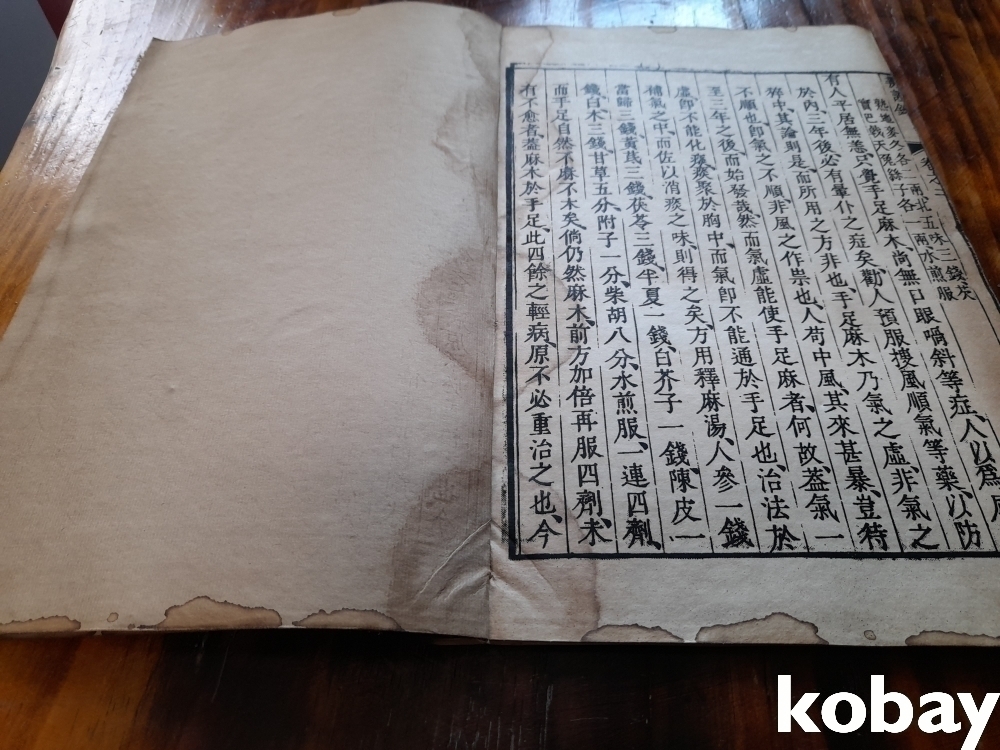 卷之二
熟地麥冬各二兩北五味三錢茨
實巴戟天兔絲子各一兩水煎服
有人平居無恙只覺手足麻木尚無口眼喎斜等症、人以爲風
於內、三年後必有暈仆之症矣、勸人預服搜風順氣等藥、以防
猝中、其論則是、而所用之方非也、手足麻木乃氣之虛、非氣之
不順也、卽氣之不順、非風之作祟也、人苟中風、其來甚暴、豈待
至三年之後、而始發哉、然而氣虛能使手足麻者、何故、葢氣一
虛卽不能化痰、痰聚於胸中、而氣卽不能通於手足也、治法於
補氣之中、而佐以消痰之味、則得之矣、方用釋麻湯、人參一錢
當歸三錢、黃芪三錢、茯苓三錢、半夏一錢、白芥子一錢、陳皮一
錢、白术三錢、甘草五分、附子一分、柴胡八分、水煎服、一連四劑、
而手足自然不麻不木矣、倘仍然麻木、前方加倍再服四劑、未
有不愈者、葢麻木於手足、此四餘之輕病、原不必重治之也、今
kobay